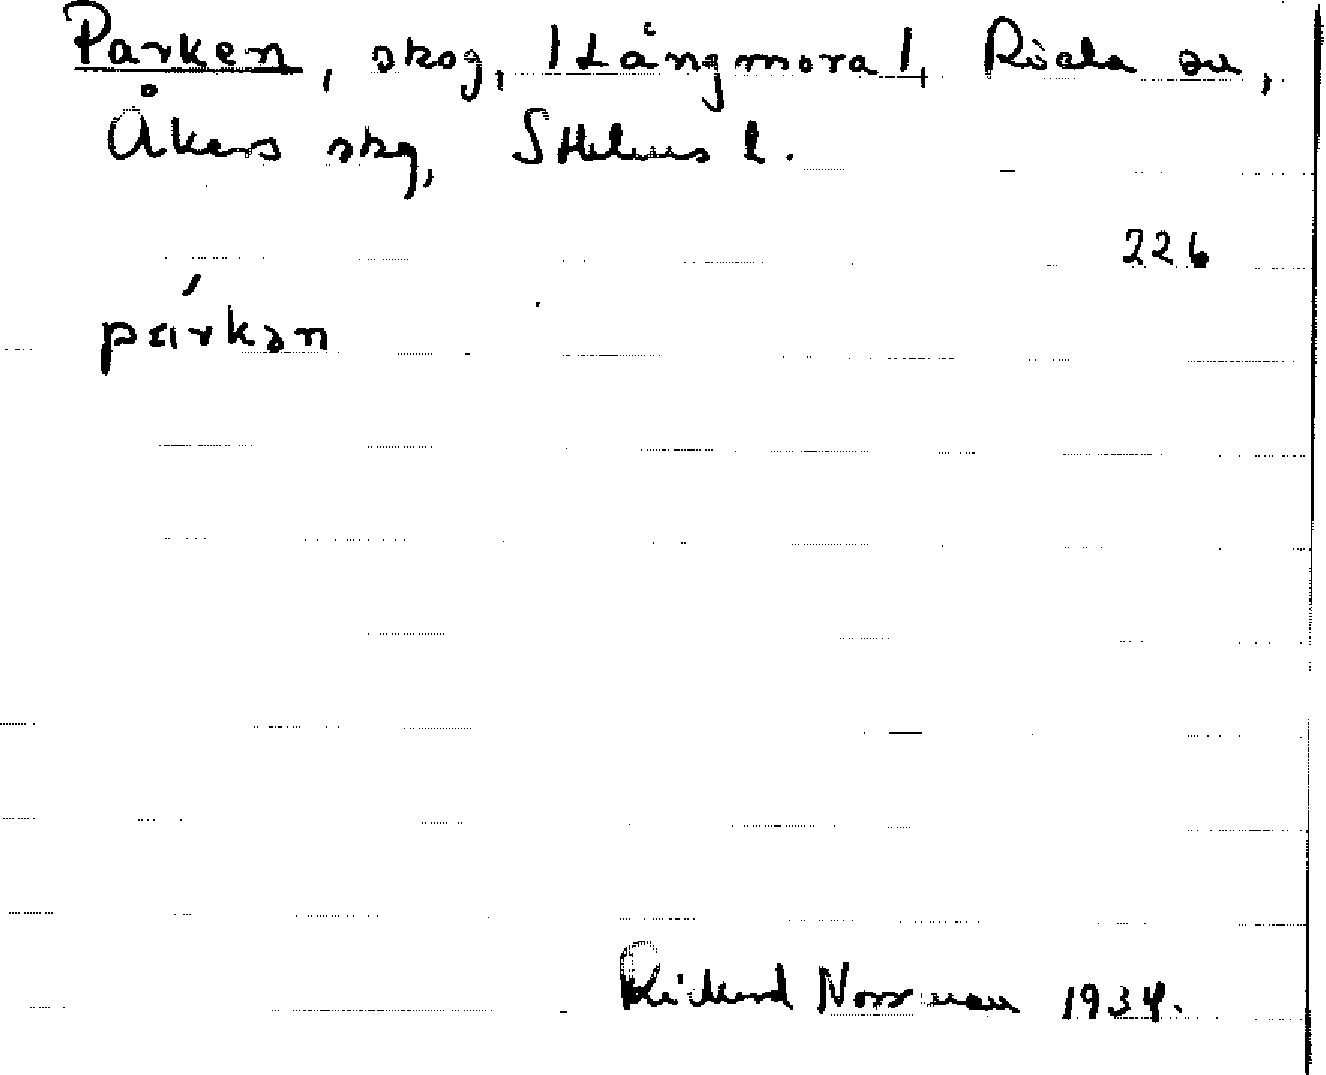 Parken, skog, |Långmora|, Röda sn,
Åkers skg, Sthlms l.
226
párkan
Rickard Norrman 1934.